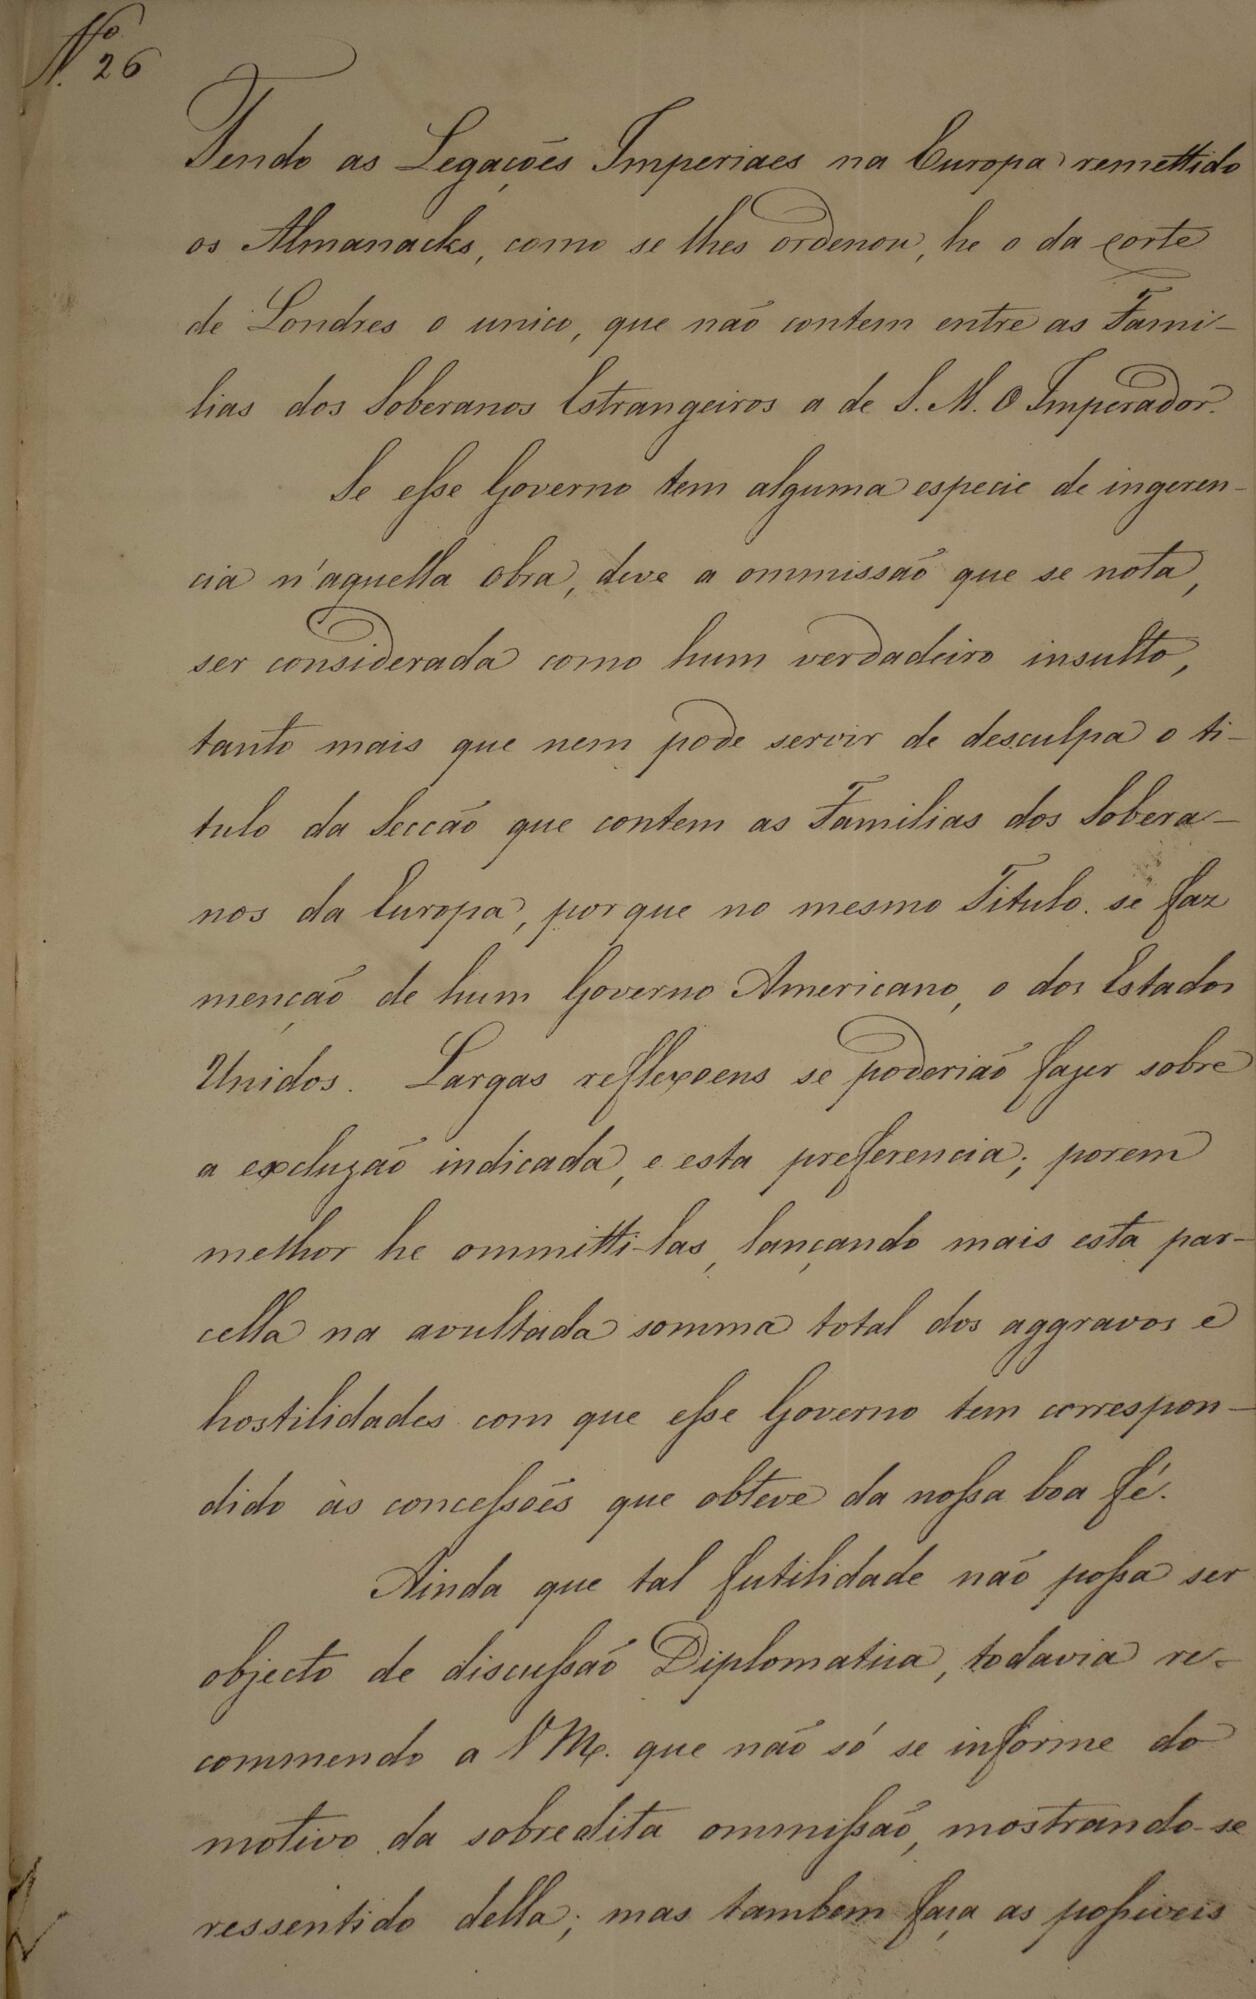 Nº 26
Tendo as Legações Imperiaes na Europa remettido
os Almanacks, como se lhes ordenou, he o da corte
de Londres o unico, que não contem entre as Fami-
lias dos Soberanos Estrangeiros a de S. M. O Imperador.
Se esse Governo tem alguma especie de ingeren-
cia n'aquella obra, deve a ommissão que se nota,
ser considerada como hum verdadeiro insulto,
tanto mais que nem pode servir de desculpa o ti-
tulo da Secção que contem as Familias dos Sobera-
nos da Europa, porque no mesmo Titulo se faz
menção de hum Governo Americano, o dos Estados
Unidos. Largas reflexoens se poderião fazer sobre
a excluzão indicada, e esta preferencia; porem
melhor he ommitti-las, lançando mais esta par-
cella na avultada somma total dos aggravos e
hostilidades com que esse Governo tem correspon-
dido às concessões que obteve da nossa boa fé.
Ainda que tal futilidade não possa ser
objecto de discussão Diplomatica, todavia re-
commendo a VMce. que não só se informe do
motivo da sobredita ommissão, mostrando-se
ressentido della; mas tambem faça as possiveis